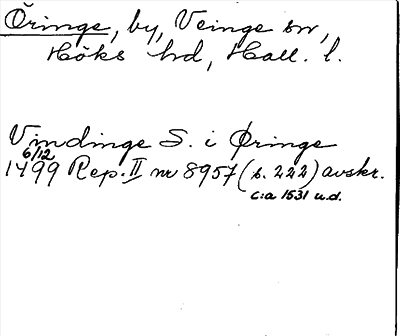 Öringe, by, Veinge sn,
Höks hd, Hall. l.
Vindinge S. i Øringe
6/12
1499 Rep. II nr 8957 (s. 222) avskr.
c:a 1531 u.d.